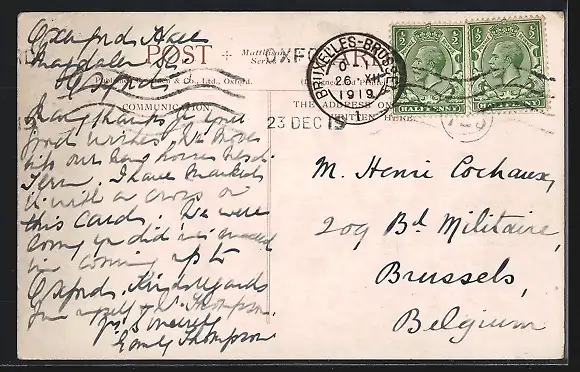 Oxenford Hall
Magdalen St.
Oxford
POST CARD
Matthison
Series
Published by & Co., Ltd., Oxford.
COMMUNICATION.
THE ADDRESS ON
WRITTEN HERE.
OXFORD
23 DEC 19
BRUXELLES-BRUSSEL
26 XII
1919
1
½ ½
HALFPENNY
½ ½
HALFPENNY
Many thanks for your
good wishes. We move
into our new house next
Term. I have marked
it with a cross on
this card.
We were
sorry you did not succeed
in coming up to
Oxford. Kind regards
from myself & Mr Thompson.
Yrs Sincerely
Emily Thompson
M. Henri Cochaux,
209 Bd Militaire,
Brussels,
Belgium